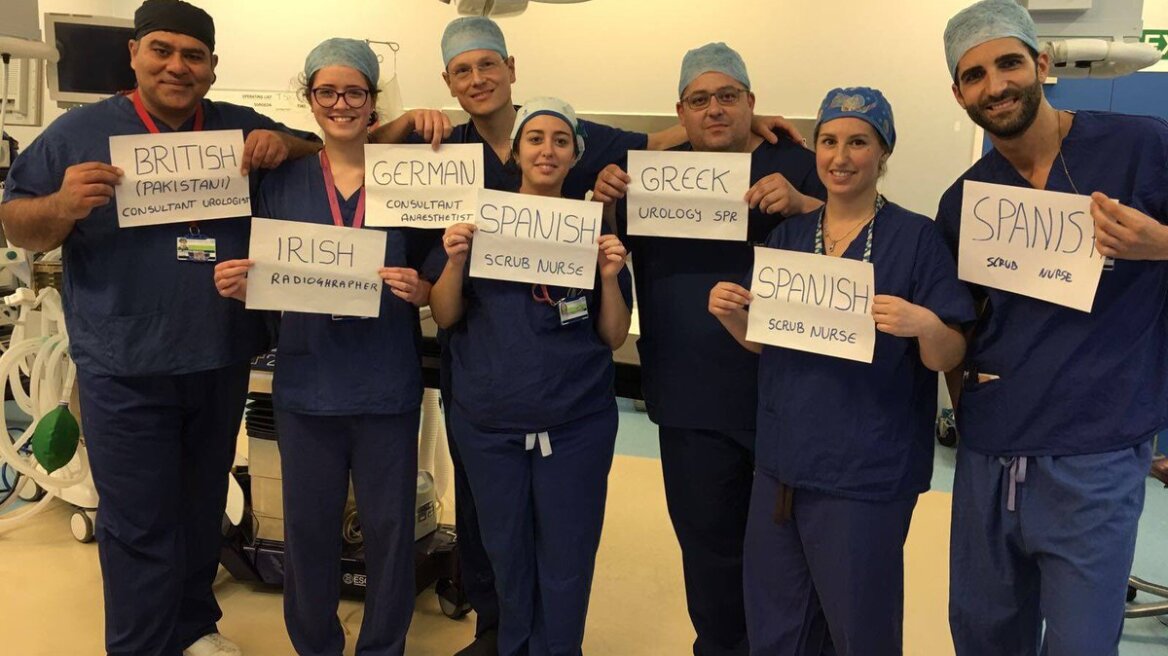 BRITISH
(PAKISTANI)
CONSULTANT UROLOGIST
IRISH
RADIOGHRAPHER
GERMAN
CONSULTANT
ANAESTHETIST
SPANISH
SCRUB NURSE
GREEK
UROLOGY SPR
SPANISH
SCRUB NURSE
SPANISH
SCRUB NURSE
OPERATING LIST
SURGEON